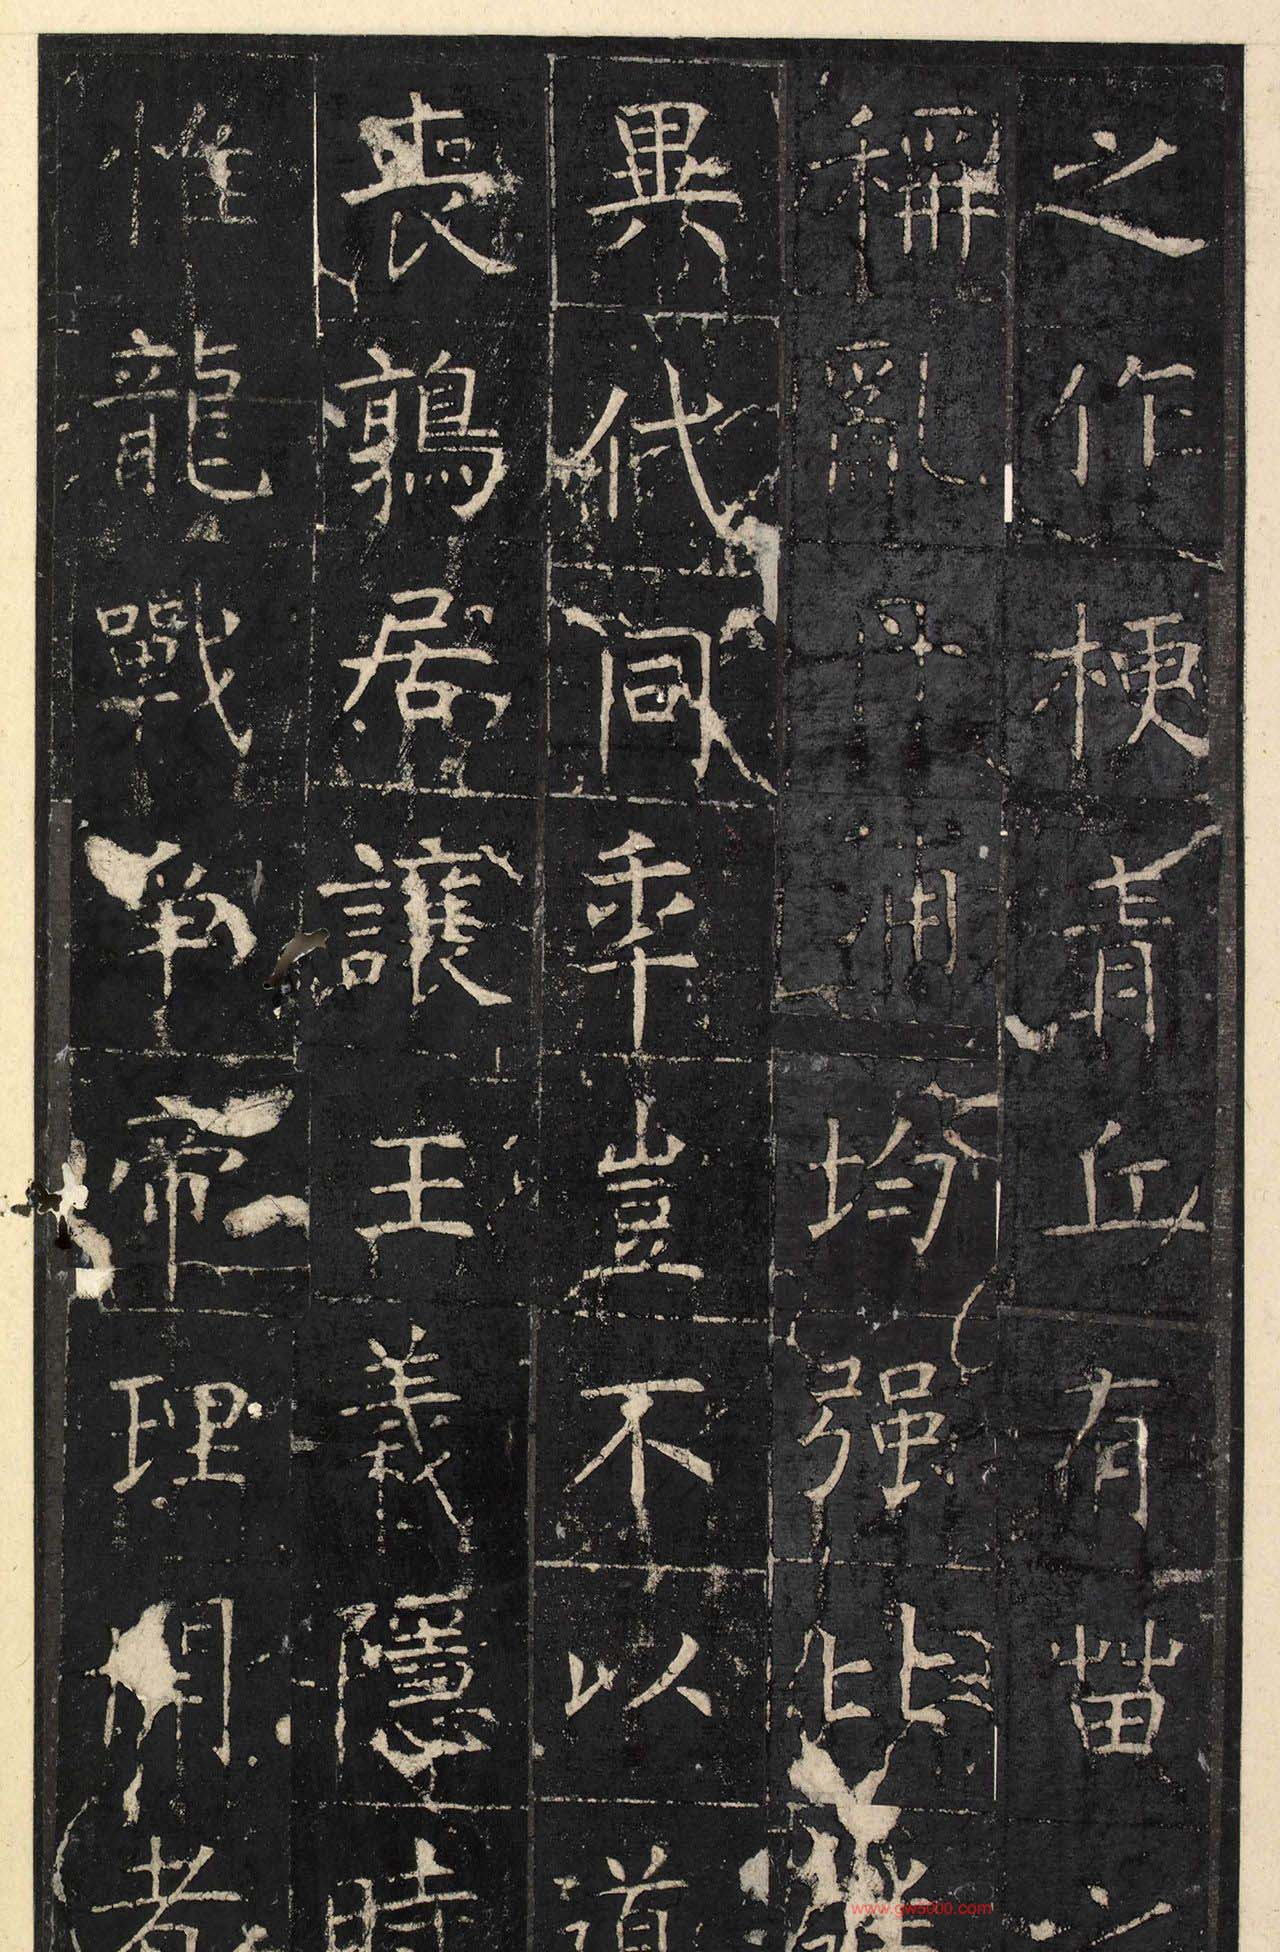 之作梗青丘有苗之
稱亂丹浦均强比雄
異代同乖豈不以道
喪鶉居讓王義隱時
惟龍戰爭帝理開者
www.gw5000.com